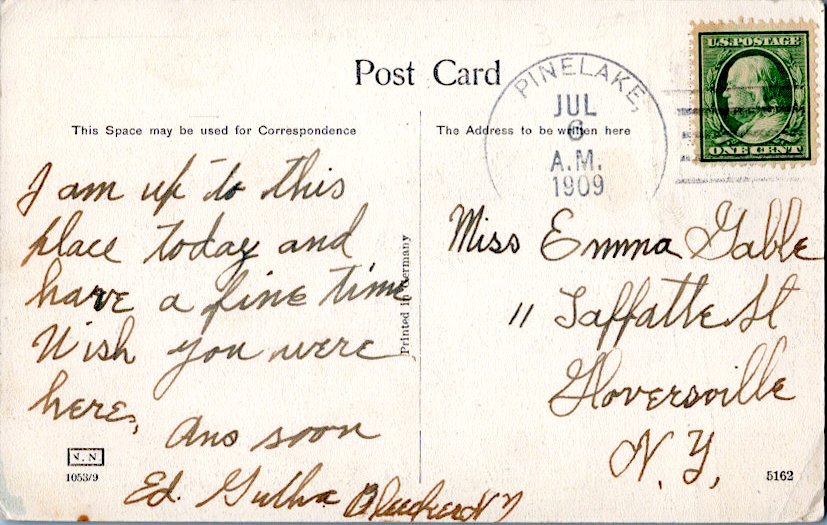 Post Card
PINELAKE,
JUL
6
A.M.
1909
U.S. POSTAGE
ONE CENT
This Space may be used for Correspondence
The Address to be written here
I am up to this
place today and
have a fine time
Wish you were
here,
Ans soon
Ed.
Bleecker N Y
Printed in Germany
Miss Emma Gable
11 Laffatte St
Gloversville
N. Y,
N.N
1053/9
5162